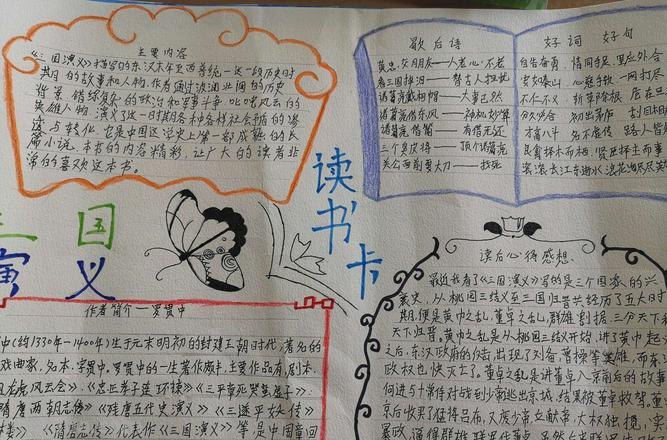 主要内容
《三国演义》描写的东汉末年至西晋统一这一段历史时
期的故事和人物.作者通过波澜壮阔的历史
背景.错综复杂的政治和军事斗争.叱咤风云的
英雄人物.演义了这一时期各种各样社会矛盾的渗
透与转化.也是中国小说史上第一部成熟的长
篇小说.本书的内容精彩,让广大的读者非
常的喜欢这本书。
歇后语
黄忠交朋友——人老心不老
看三国掉泪——替古人担忧
诸葛亮戴相帽——大事已然
诸葛亮借东风——神机妙算
诸葛亮借箭——有借无还
三个臭皮将——顶个诸葛亮
关公面前耍大刀——找死
好词 好句
自告奋勇 情同手足 里应外合
安如泰山 心慈手软 一网打尽
不仁不义 斩草除根 居在
初出茅庐 刮目相
才高八斗 名不虚传 路人皆
良禽择木而栖,贤臣择主而事
滚滚长江东逝水,浪花淘尽英
三国
演义
读书卡
作者简介—罗贯中
中(约1330年-1400年)生于元末明初的封建王朝时代,著名的
戏曲家.名本.字贯中.罗贯中的一生著作颇丰.主要作品有,剧本.
龙虎风云会》.《忠正孝子连环谏》《三平章死哭蜚虎子》.
隋唐两朝志传》《残唐五代史演义》《三遂平妖传》
代表作《三国演义》等.是中国章回
读后心得感想.
最近我看了《三国演义》写的是三个国家的兴
衰史,从桃园三结义至三国归晋共经历了五大时
期.便是黄巾之乱.董卓之乱.群雄割据.三分天下和
天下归晋.黄巾之乱是从桃园三结义开始.讲了黄巾起
之后.东汉政府的介绍.出现了刘备.曹操等英雄.而东
政权也快灭亡了.董卓之乱是讲董卓入京前后的故事
何进与十常侍对战到少帝逃出京城,结果被董卓救驾.董
京后收买了猛将吕布,又废少帝立献帝,大权独揽,实